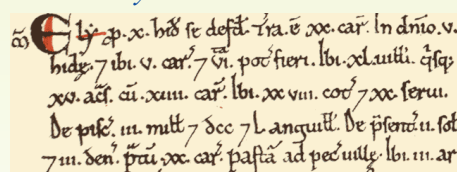 cō Ely ꝑ .x. hid se defd. Tra ē xx. car. In dnio .v.
hidę. ⁊ ibi .v. car ⁊ vi. pot fieri. Ibi .xl. uilli. qisq;
xv. acs. cū .xiiii. car. Ibi .xx viii. cot ⁊ xx. serui.
De pisc .iii. mill ⁊ dcc ⁊ L. anguill. De psentat .ii. sol
⁊ iii. den. ptū .xx. car. pasta ad pec uille. Ibi .iii. ar